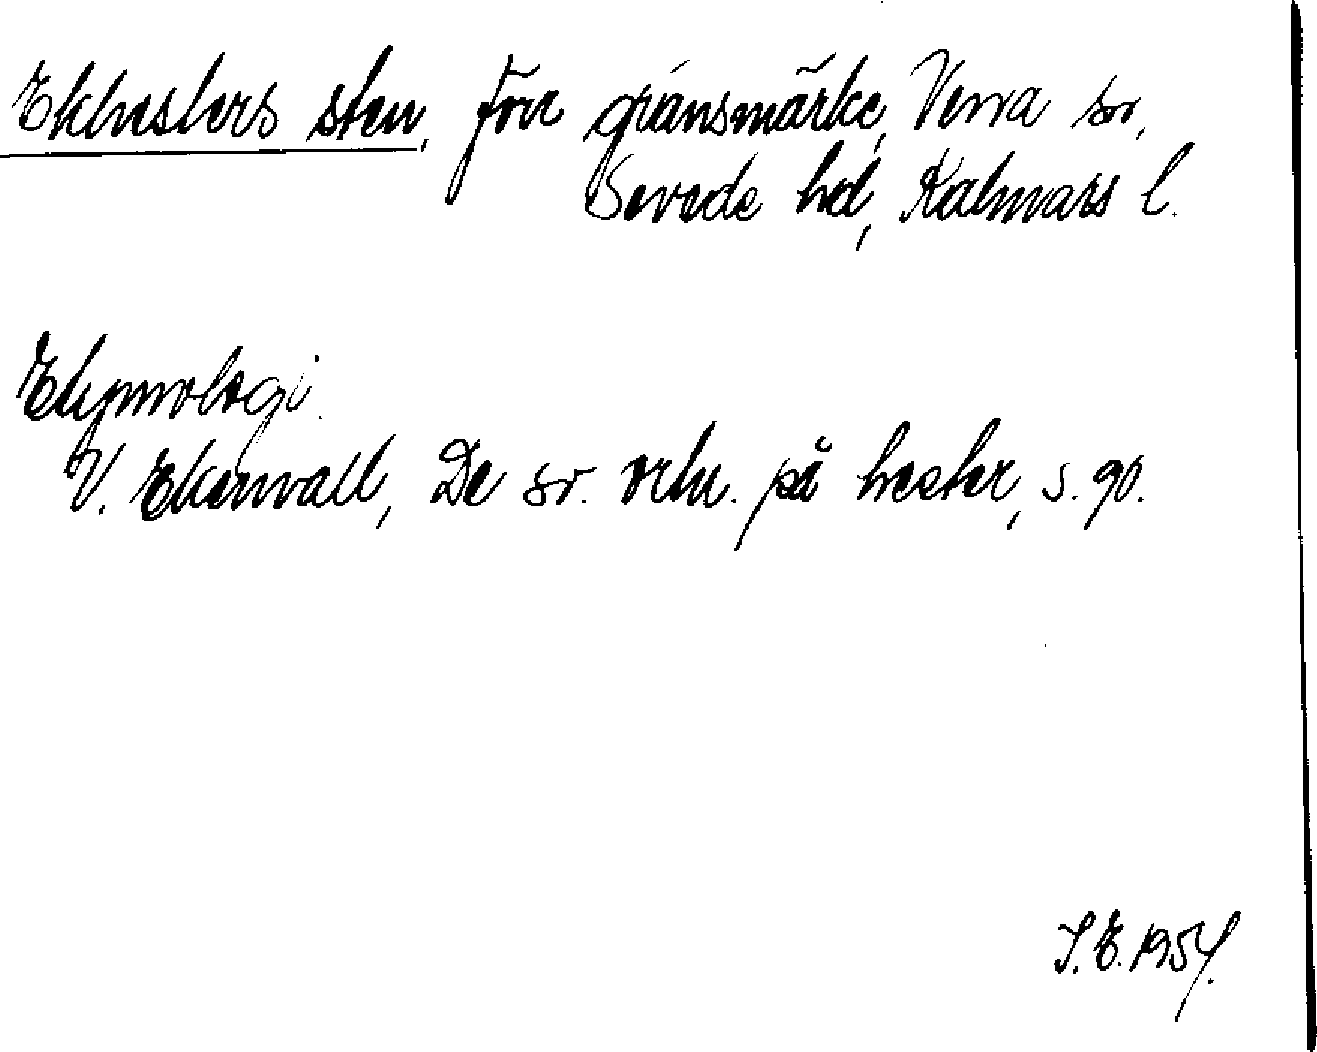 Ekhesters sten, förr gränsmärke, Vena sn,
Sevede hd, Kalmars l.
Etymologi.
V. Ekenvall, De sv. ortn. på hester, s. 90.
S. E. 1954.